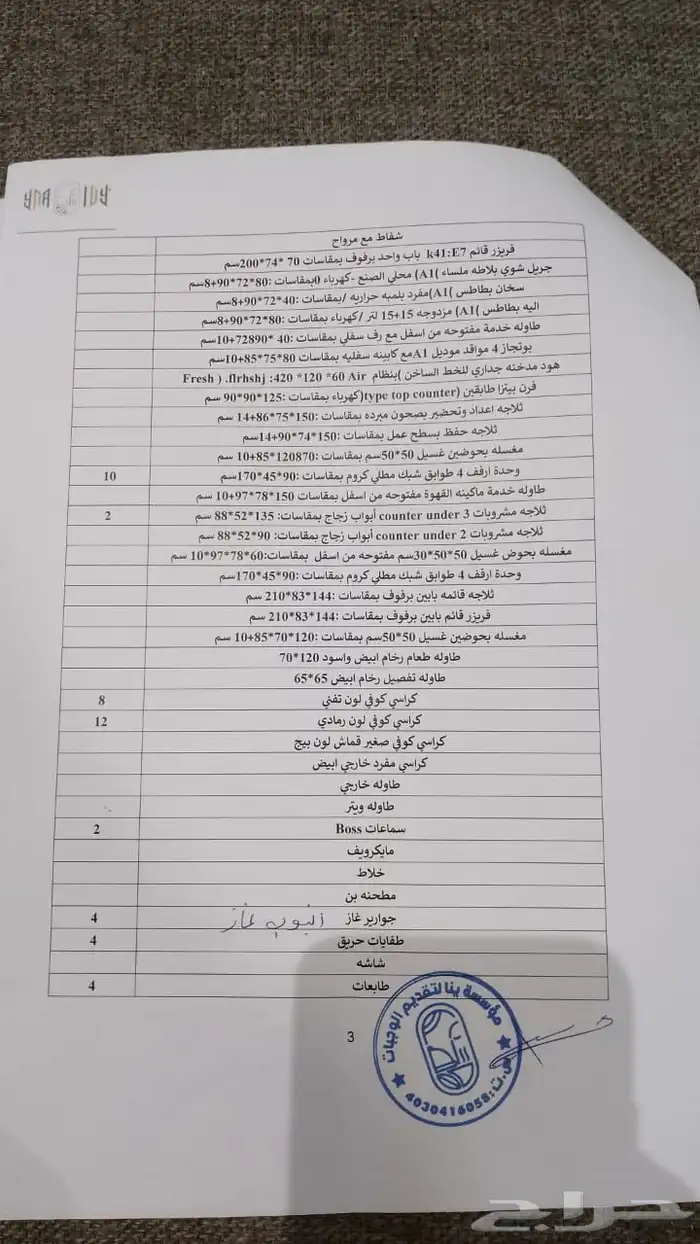 شفاط مع مرواح
فريزر قائم k41:E7 باب واحد برفوف بمقاسات 70 *74*200سم
جريل شوي بلاطه ملساء )A1( محلي الصنع -كهرباء 0بمقاسات :80*72*90+8سم
سخان بطاطس )A1(مفرد بلمبه حراريه /بمقاسات :40*72*90+8سم
اليه بطاطس )A1( مزدوجه 15+15 لتر /كهرباء بمقاسات :80*72*90+8سم
طاوله خدمة مفتوحه من اسفل مع رف سفلي بمقاسات :40 *72890+10سم
بوتجاز 4 مواقد موديل A1مع كابينه سفليه بمقاسات 80*75*85+10سم
هود مدخنه جداري للخط الساخن )بنظام Fresh ) .flrhshj :420 *120 *60 Air
فرن بيتزا طابقين (type top counter)كهرباء بمقاسات :125*90*90 سم
ثلاجه اعداد وتحضير بصحون مبرده بمقاسات :150*75*86+14 سم
ثلاجه حفظ بسطح عمل بمقاسات :150*74*90+14سم
مغسله بحوضين غسيل 50*50سم بمقاسات :120870*85+10 سم
وحدة ارفف 4 طوابق شبك مطلي كروم بمقاسات :90*45*170سم 10
طاوله خدمة ماكينه القهوة مفتوحه من اسفل بمقاسات 150*78*97+10 سم
ثلاجه مشروبات counter under 3 أبواب زجاج بمقاسات: 135*52*88 سم 2
ثلاجه مشروبات counter under 2 أبواب زجاج بمقاسات: 90*52*88 سم
مغسله بحوض غسيل 50*50*30سم مفتوحه من اسفل بمقاسات:60*78*97*10 سم
وحدة ارفف 4 طوابق شبك مطلي كروم بمقاسات :90*45*170سم
ثلاجه قائمه بابين برفوف بمقاسات :144*83*210 سم
فريزر قائم بابين برفوف بمقاسات :144*83*210 سم
مغسله بحوضين غسيل 50*50سم بمقاسات :120*70*85+10 سم
طاوله طعام رخام ابيض واسود 120*70
طاوله تفصيل رخام ابيض 65*65
كراسي كوفي لون تفني 8
كراسي كوفي لون رمادي 12
كراسي كوفي صغير قماش لون بيج
كراسي مفرد خارجي ابيض
طاوله خارجي
طاوله ويتر
سماعات Boss 2
مايكرويف
خلاط
مطحنه بن
جوارير غاز انبوب غاز 4
طفايات حريق 4
شاشه
طابعات 4
3
مؤسسة ينا لتقديم الوجبات
س.ت: 4030416058
حراج